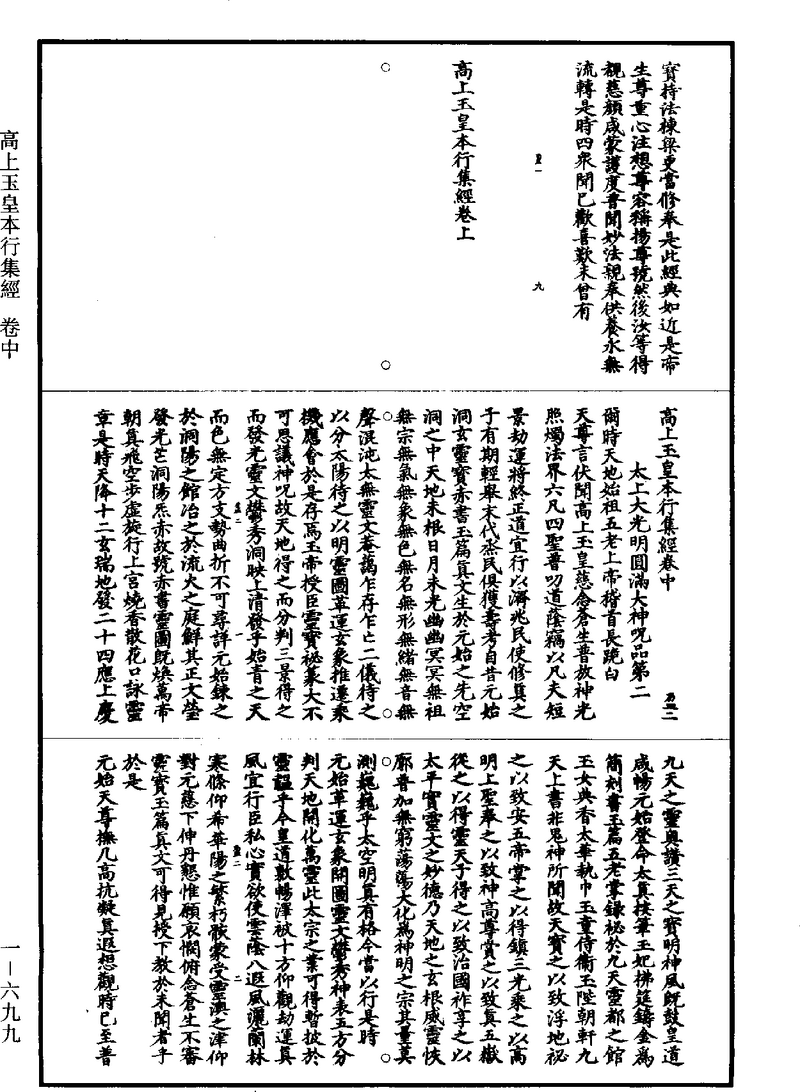 寶持法棟梁更當修奉是此經典如近是帝
生尊重心注想尊容稱揚尊號然後汝等得
覩慈顔咸蒙護度普聞妙法親奉供養永無
流轉是時四衆聞已歡喜歎未曾有
九
高上玉皇本行集經卷上
高上玉皇本行集經卷中
太上大光明圓滿大神呪品第二
爾時天地始祖五老上帝稽首長跪白
天尊言伏聞高上玉皇慈念蒼生普放神光
照燭法界六凡四聖普叨道蔭竊以凡夫短
景劫運將終正道宜行以濟兆民使修真之
于有期輕舉末代烝民俱獲壽考自昔元始
洞玄靈寶赤書玉篇真文生於元始之先空
洞之中天地未根日月未光幽幽冥冥無祖
無宗無氣無象無色無名無形無緒無音無
聲混沌太無靈文菴藹乍存乍亡二儀待之
以分太陽待之以明靈圖革運玄象推遷乘
機應會於是存焉玉帝授臣靈寶祕篆大不
可思議神呪故天地得之而分判三景得之
而發光靈文欝秀洞映上清發乎始青之天
而色無定方文勢曲折不可尋詳元始錬之
於洞陽之館冶之於流火之庭鮮其正文瑩
發光芒洞陽炁赤故號赤書靈圖既煥萬帝
朝真飛空步虚旋行上宫燒香散花口詠靈
章是時天降十二玄瑞地發二十四應上慶
九天之靈奥讃三天之寶明神風既鼓皇道
咸暢元始登命太真按筆玉妃拂筵鑄金為
簡刻書玉篇五老掌録祕於九天靈都之館
玉女典香太華執巾玉童侍衛玉陛朝軒九
天上書非鬼神所聞故天寶之以致浮地祕
之以致安五帝掌之以得鎮三光乘之以高
明上聖奉之以致神高尊賞之以致真五嶽
從之以得靈天子得之以致治國祚享之以
太平寶靈文之妙德乃天地之玄根威靈恢
廓普加無窮蕩蕩大化為神明之宗其量莫
測巍巍乎太空明真有格今當以行是時
元始革運玄象開圖靈文欝秀神表五方分
判天地開化萬靈此太宗之業可得暫披於
靈藴乎今皇道敷暢澤被十方仰觀劫運真
風宜行臣私心實欲使雲蔭八遐風灑蘭林
寒條仰希華陽之繁朽骸蒙受靈澳之津仰
對元慈下伸丹懇惟願哀憫俯念蒼生不審
靈寶玉篇真文可得見授下教於未聞者乎
於是
元始天尊撫几高抗凝真遐想觀時已至普
高上玉皇本行集經　卷中
一—六九九